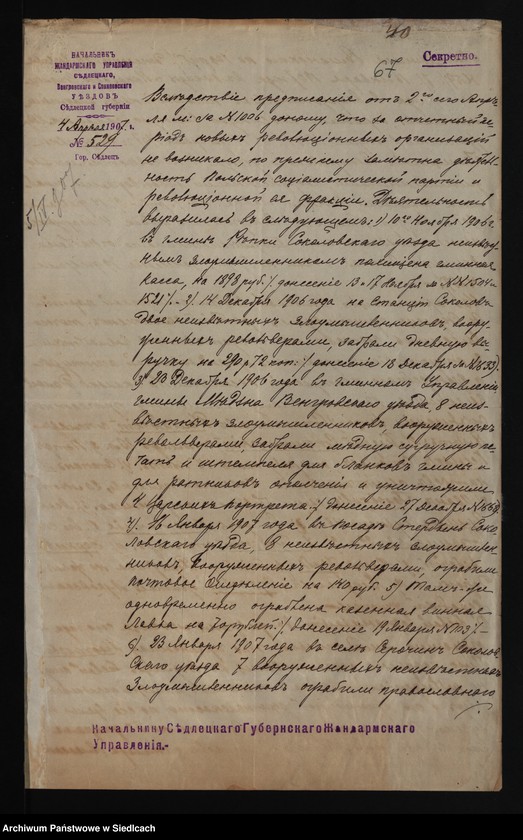 40
67
НАЧАЛЬНИКЪ
ЖАНДАРМСКАГО УПРАВЛЕНІЯ
СѢДЛЕЦКАГО,
Венгровскаго и Соколовскаго
УѢЗДОВЪ
Сѣдлецкой губерніи
4 Апрѣля 1907 г.
№ 529
Гор. Сѣдлецъ
Секретно.
Вслѣдствіе предписанія отъ 2го сего Апрѣ-
ля м. за № 1006 доношу, что за отчетный пе-
ріодъ новыхъ революціонныхъ организацій
не возникало, по прежнему замѣтна дѣятель-
ность Польской соціалистической партіи и
революціонной ея фракціи. Дѣятельность
выразилась въ слѣдующемъ: 1) 10го Ноября 1906 г.
въ гминѣ Репки Соколовскаго уѣзда неизвѣст-
нымъ злоумышленникомъ похищена гминная
касса, на 1898 руб. /донесеніе 13 и 17 Ноября м. №№ 1504-
1521/. 2) 14 Декабря 1906 года на станціи Соколовъ
двое неизвѣстныхъ злоумышленниковъ, воору-
женныхъ револьверами, забрали дневную вы-
ручку на 290 р. 72 коп. /донесеніе 18 Декабря
3) 23 Декабря 1906 года въ гминномъ Управленіи
гмины Венгровскаго уѣзда, 8 неиз-
вѣстныхъ злоумышленниковъ, вооруженныхъ
револьверами, забрали мѣдную сургучную пе-
чать и штемпеля для бланковъ гмины и
для ратниковъ ополченія и уничтожили
4 царскихъ портрета /донесеніе 27 Декабря
4) 16 Января 1907 года въ посадѣ Стердынь Соко-
ловскаго уѣзда, 8 неизвѣстныхъ злоумышлен-
никовъ, вооруженныхъ револьверами, ограбили
почтовое отдѣленіе на 140 руб. 5) Тамъ-же
одновременно ограблена казенная винная
лавка на 7 руб. /донесеніе 19 Января № 103/.
6) 23 Января 1907 года въ селѣ Соколов-
скаго уѣзда 7 вооруженныхъ неизвѣстныхъ
злоумышленниковъ ограбили православнаго
Начальнику Сѣдлецкаго Губернскаго Жандармскаго
Управленія.-
Archiwum Państwowe w Siedlcach